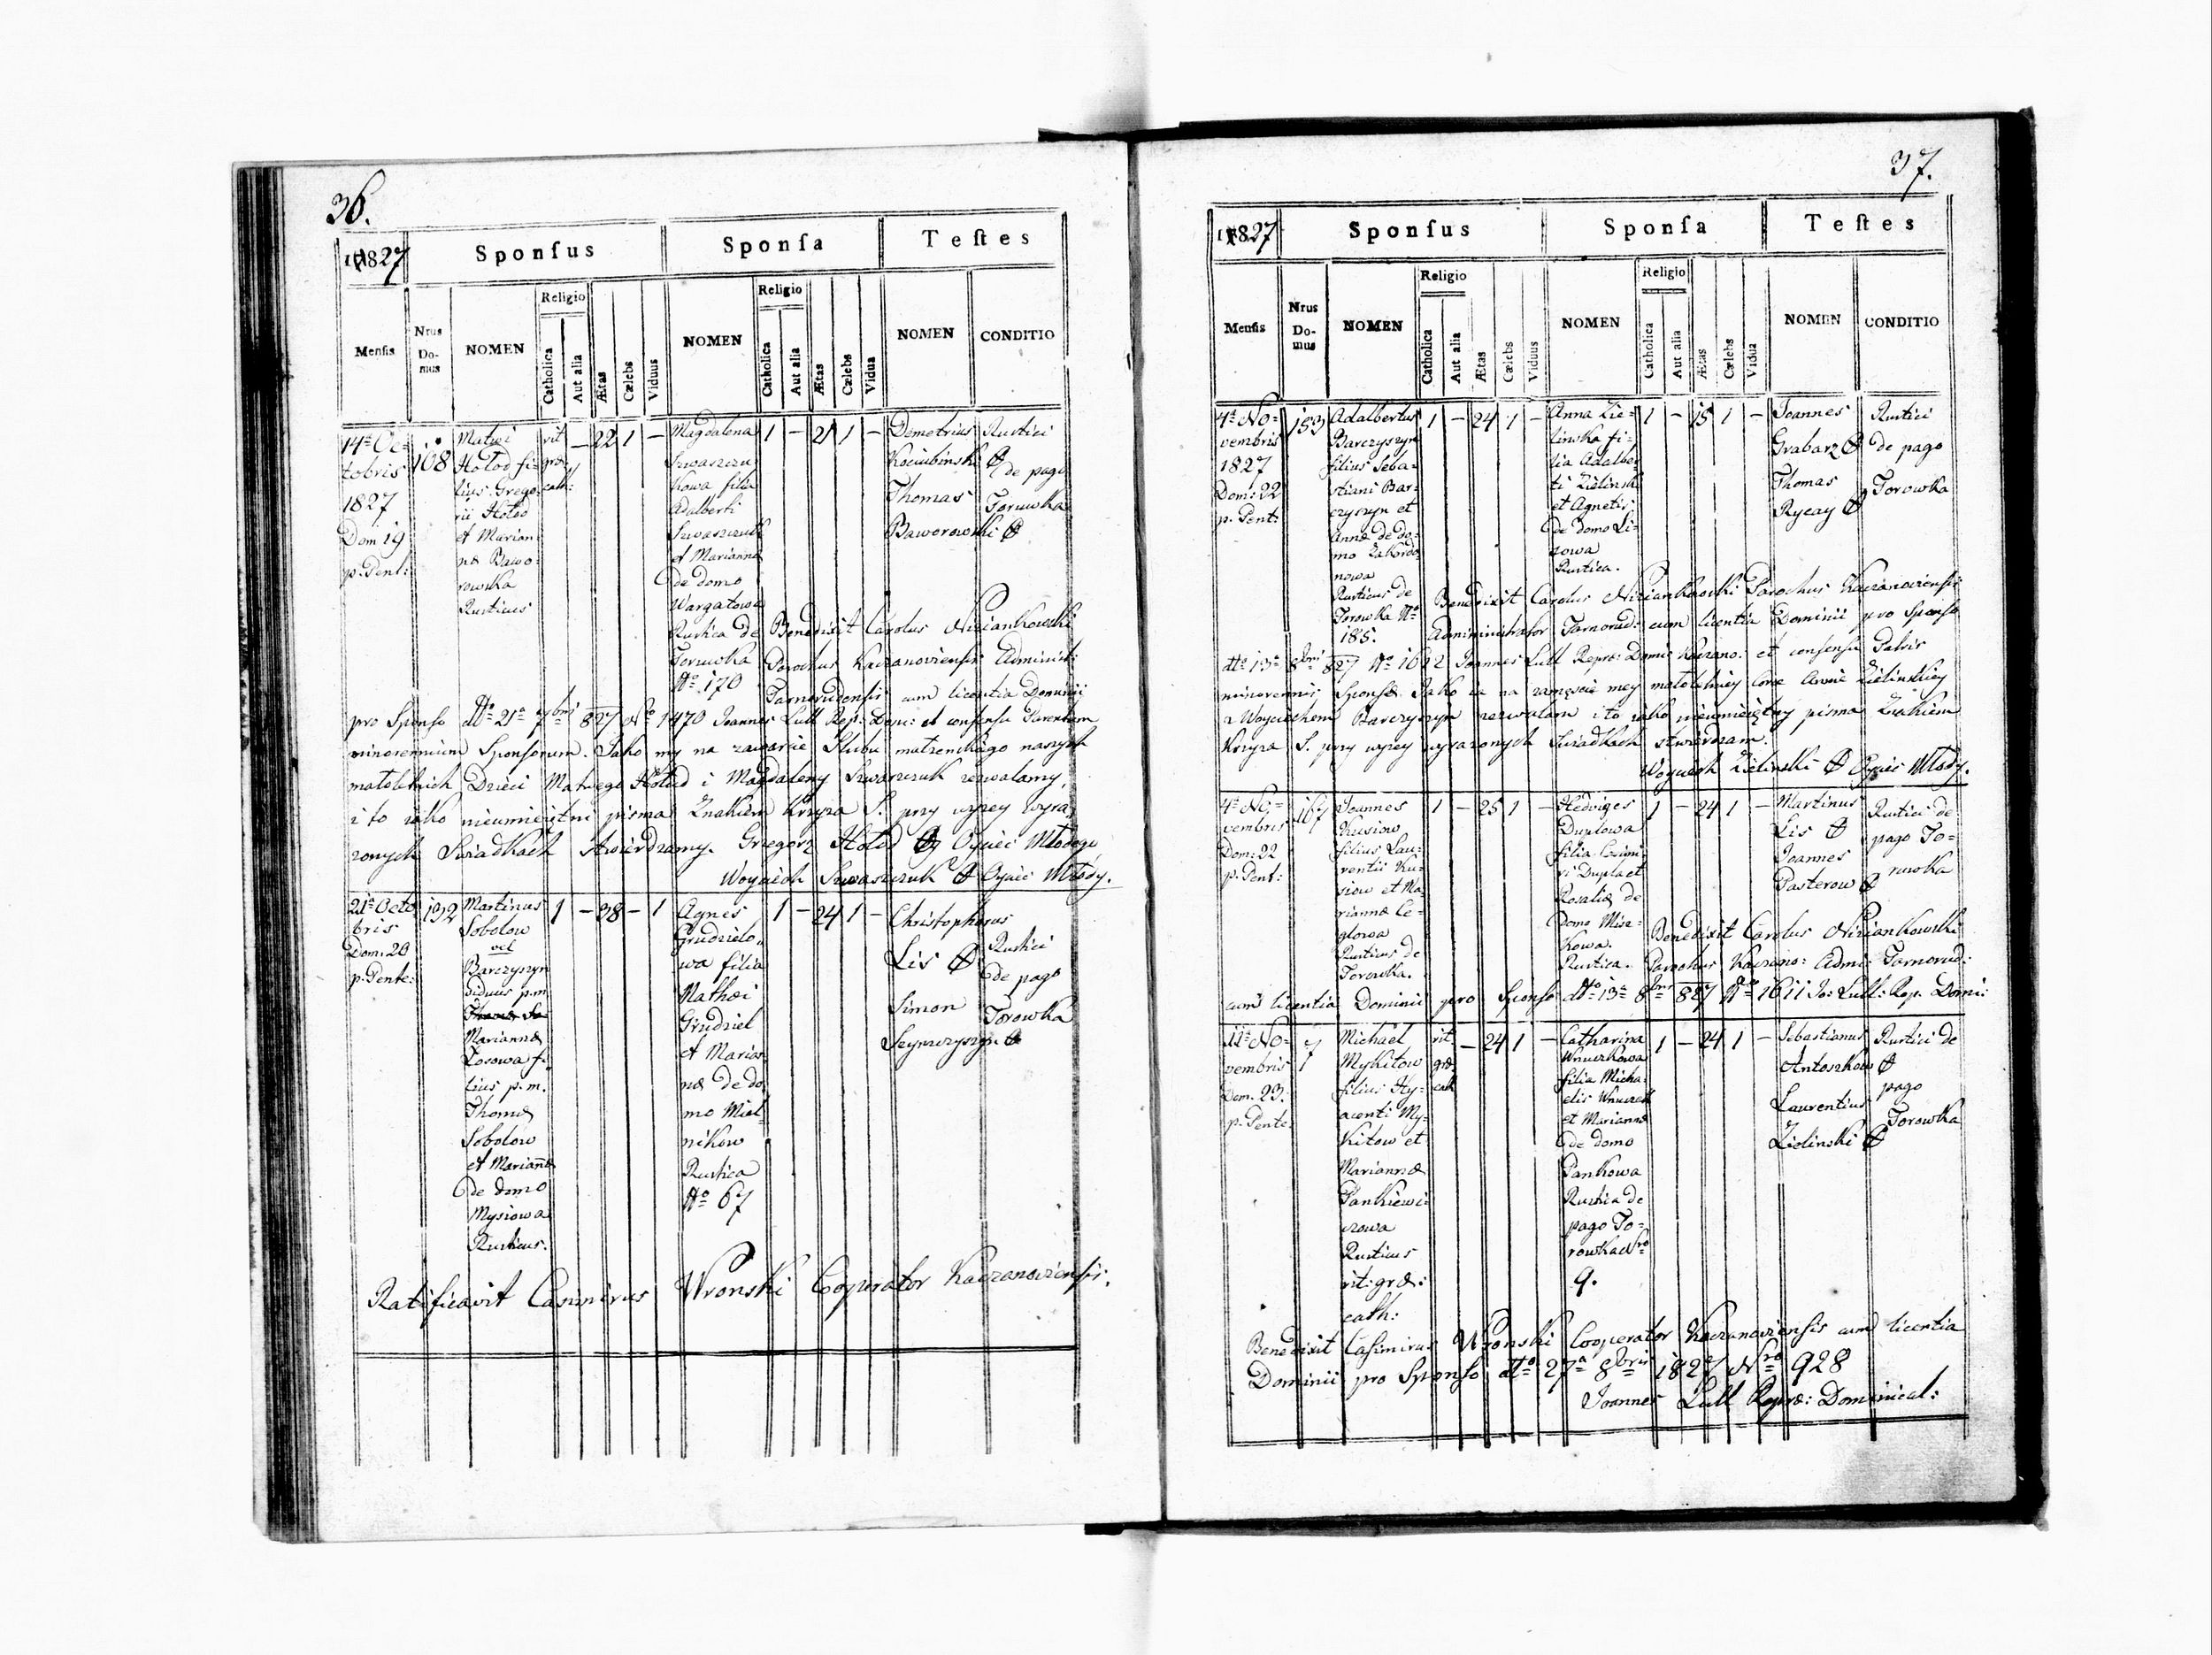 36.
1827
Sponsus
Sponsa
Testes
Mensis
Nrus Domus
NOMEN
Religio
Catholica
Aut alia
Ætas
Cælebs
Viduus
NOMEN
Religio
Catholica
Aut alia
Ætas
Cælebs
Vidua
NOMEN
CONDITIO
14ª Oc=
tobris
1827
Dom 19
p. Pent:
108
Matwei
Hołod fi=
lius Grego:
rii Hołod
et Marian
næ Bawo:
rowska
Rusticus
rit
græ
cath:
– 22 1 –
Magdalena
Szwaszczu
kowa filia
Adalberti
Szwaszczuk
et Marianna
de domo
Wargatowa
Rustica de
Toruwka
Nº 170
1 – 21 1 –
Demetrius
Kociubinski
Thomas
Baworowski
Rustici
de pago
Toruwka
Benedixit Carolus Niziankowski
Parochus Kaczanoviensis Administ:
Tarnorudensis cum licentia Dominii
pro Sponso dtº 21ª 7bris 827 Nº 1470 Joannes Lull Rep: Dom: et consensu Parentum
minorennium Sponsorum. Jako my na zawarcie Slubu małzenskiego naszych
małoletnich Dzieci Matwego Hołod i Magdaleny Szwaszczuk zezwalamy,
i to iako nieumieiętni pisma Znakiem Krzyza S. przy wyzey wyra
zonych Swiadkach stwierdzamy. Grzegorz Hołod Oyciec Młodego
Woyciech Szwaszczuk Oyciec Młody.
21ª Octo
bris
Dom. 20
p. Pente:
132
Martinus
Sobolow
vel
Barczyszyn
viduus p.m.
Mariannæ
Zosowa fi=
lius p.m.
Thomæ
Sobolow
et Mariannæ
de domo
Mysiowa
Rusticus.
1 – 38 – 1
Agnes
Grudzielo
wa filia
Mathæi
Grudziel
et Marian
næ de do
mo Miel
nikow
Rustica
Nº 67
1 – 24 1 –
Christophorus
Lis
Simon
Seymczyszyn
Rustici
de pago
Torowka
Ratificavit Casimirus Wronski Cooperator Kaczanoviensis.
37.
1827
Sponsus
Sponsa
Testes
Mensis
Nrus Domus
NOMEN
Religio
Catholica
Aut alia
Ætas
Cælebs
Viduus
NOMEN
Religio
Catholica
Aut alia
Ætas
Cælebs
Vidua
NOMEN
CONDITIO
4ª No=
vembris
1827
Dom: 22
p. Pent:
183
Adalbertus
Barczyszyn
filius Seba=
stiani Bar=
czyszyn et
Annæ de do=
mo Zakordo
nowa
Rusticus de
Torowka Nº
185.
1 – 24 1 –
Anna Zie=
linska fi=
lia Adalber
ti Zielinski
et Agnetis
de domo Li=
sowa
Rustica.
1 – 15 1 –
Joannes
Grabarz
Thomas
Rycay
Rustici
de pago
Torowka
Benedixit Carolus Niziankowski Parochus Kaczanoviensis
Administrator Tarnorud: cum licentia Dominii pro Sponso
dtº 13ª 8bris 827 Nº 1612 Joannes Lull Repræ: Domi: Kaczano: et consensu Patris
minorennis Sponsæ. Jako ia na zamęscie mey małoletniey Corce Annie Zielinskiey
z Woyciechem Barczyszyn zezwalam i to iako nieumieiętny pisma Znakiem
Krzyza S. przy wyzey wyrazonych Swiadkach stwierdzam.
Woyciech Zielinski Oyciec Młody.
4ª No=
vembris
Dom: 22
p. Pent:
167
Joannes
Kusiow
filius Lau=
rentii Ku=
siow et Ma
riannæ Ce=
glowa
Rusticus de
Torowka.
1 – 25 1 –
Hedviges
Duplowa
filia Casimi
ri Dupla et
Rosaliæ de
Domo Misz=
kowa.
Rustica.
1 – 24 1 –
Martinus
Lis
Joannes
Pasterow
Rustici de
pago To=
rowka
Benedixit Carolus Niziankowski
Parochus Kaczano: Admi: Tarnorud:
cum licentia Dominii pro Sponso dtº 13ª 8bris 827 Nº 1611 Jo: Lull: Rep. Domi:
11ª No=
vembris
Dom. 23.
p. Pente:
7
Michael
Mykitow
filius Hy=
acenti My=
kitow et
Mariannæ
Pankiewi=
czowa
Rusticus
rit: græ:
cath:
rit
græ
cath
– 24 1 –
Catharina
Wnuczkowa
filia Micha
elis Wnuczek
et Mariannæ
de domo
Pankowa
Rustica de
pago To=
rowka Nro
9.
1 – 24 1 –
Sebastianus
Antoszkow
Laurentius
Zielinski
Rustici de
pago
Torowka
Benedixit Casimirus Wronski Cooperator Kaczanoviensis cum licentia
Dominii pro Sponso dtº 27ª 8bris 1827 Nro 928
Joannes Lull Repræ: Dominical: